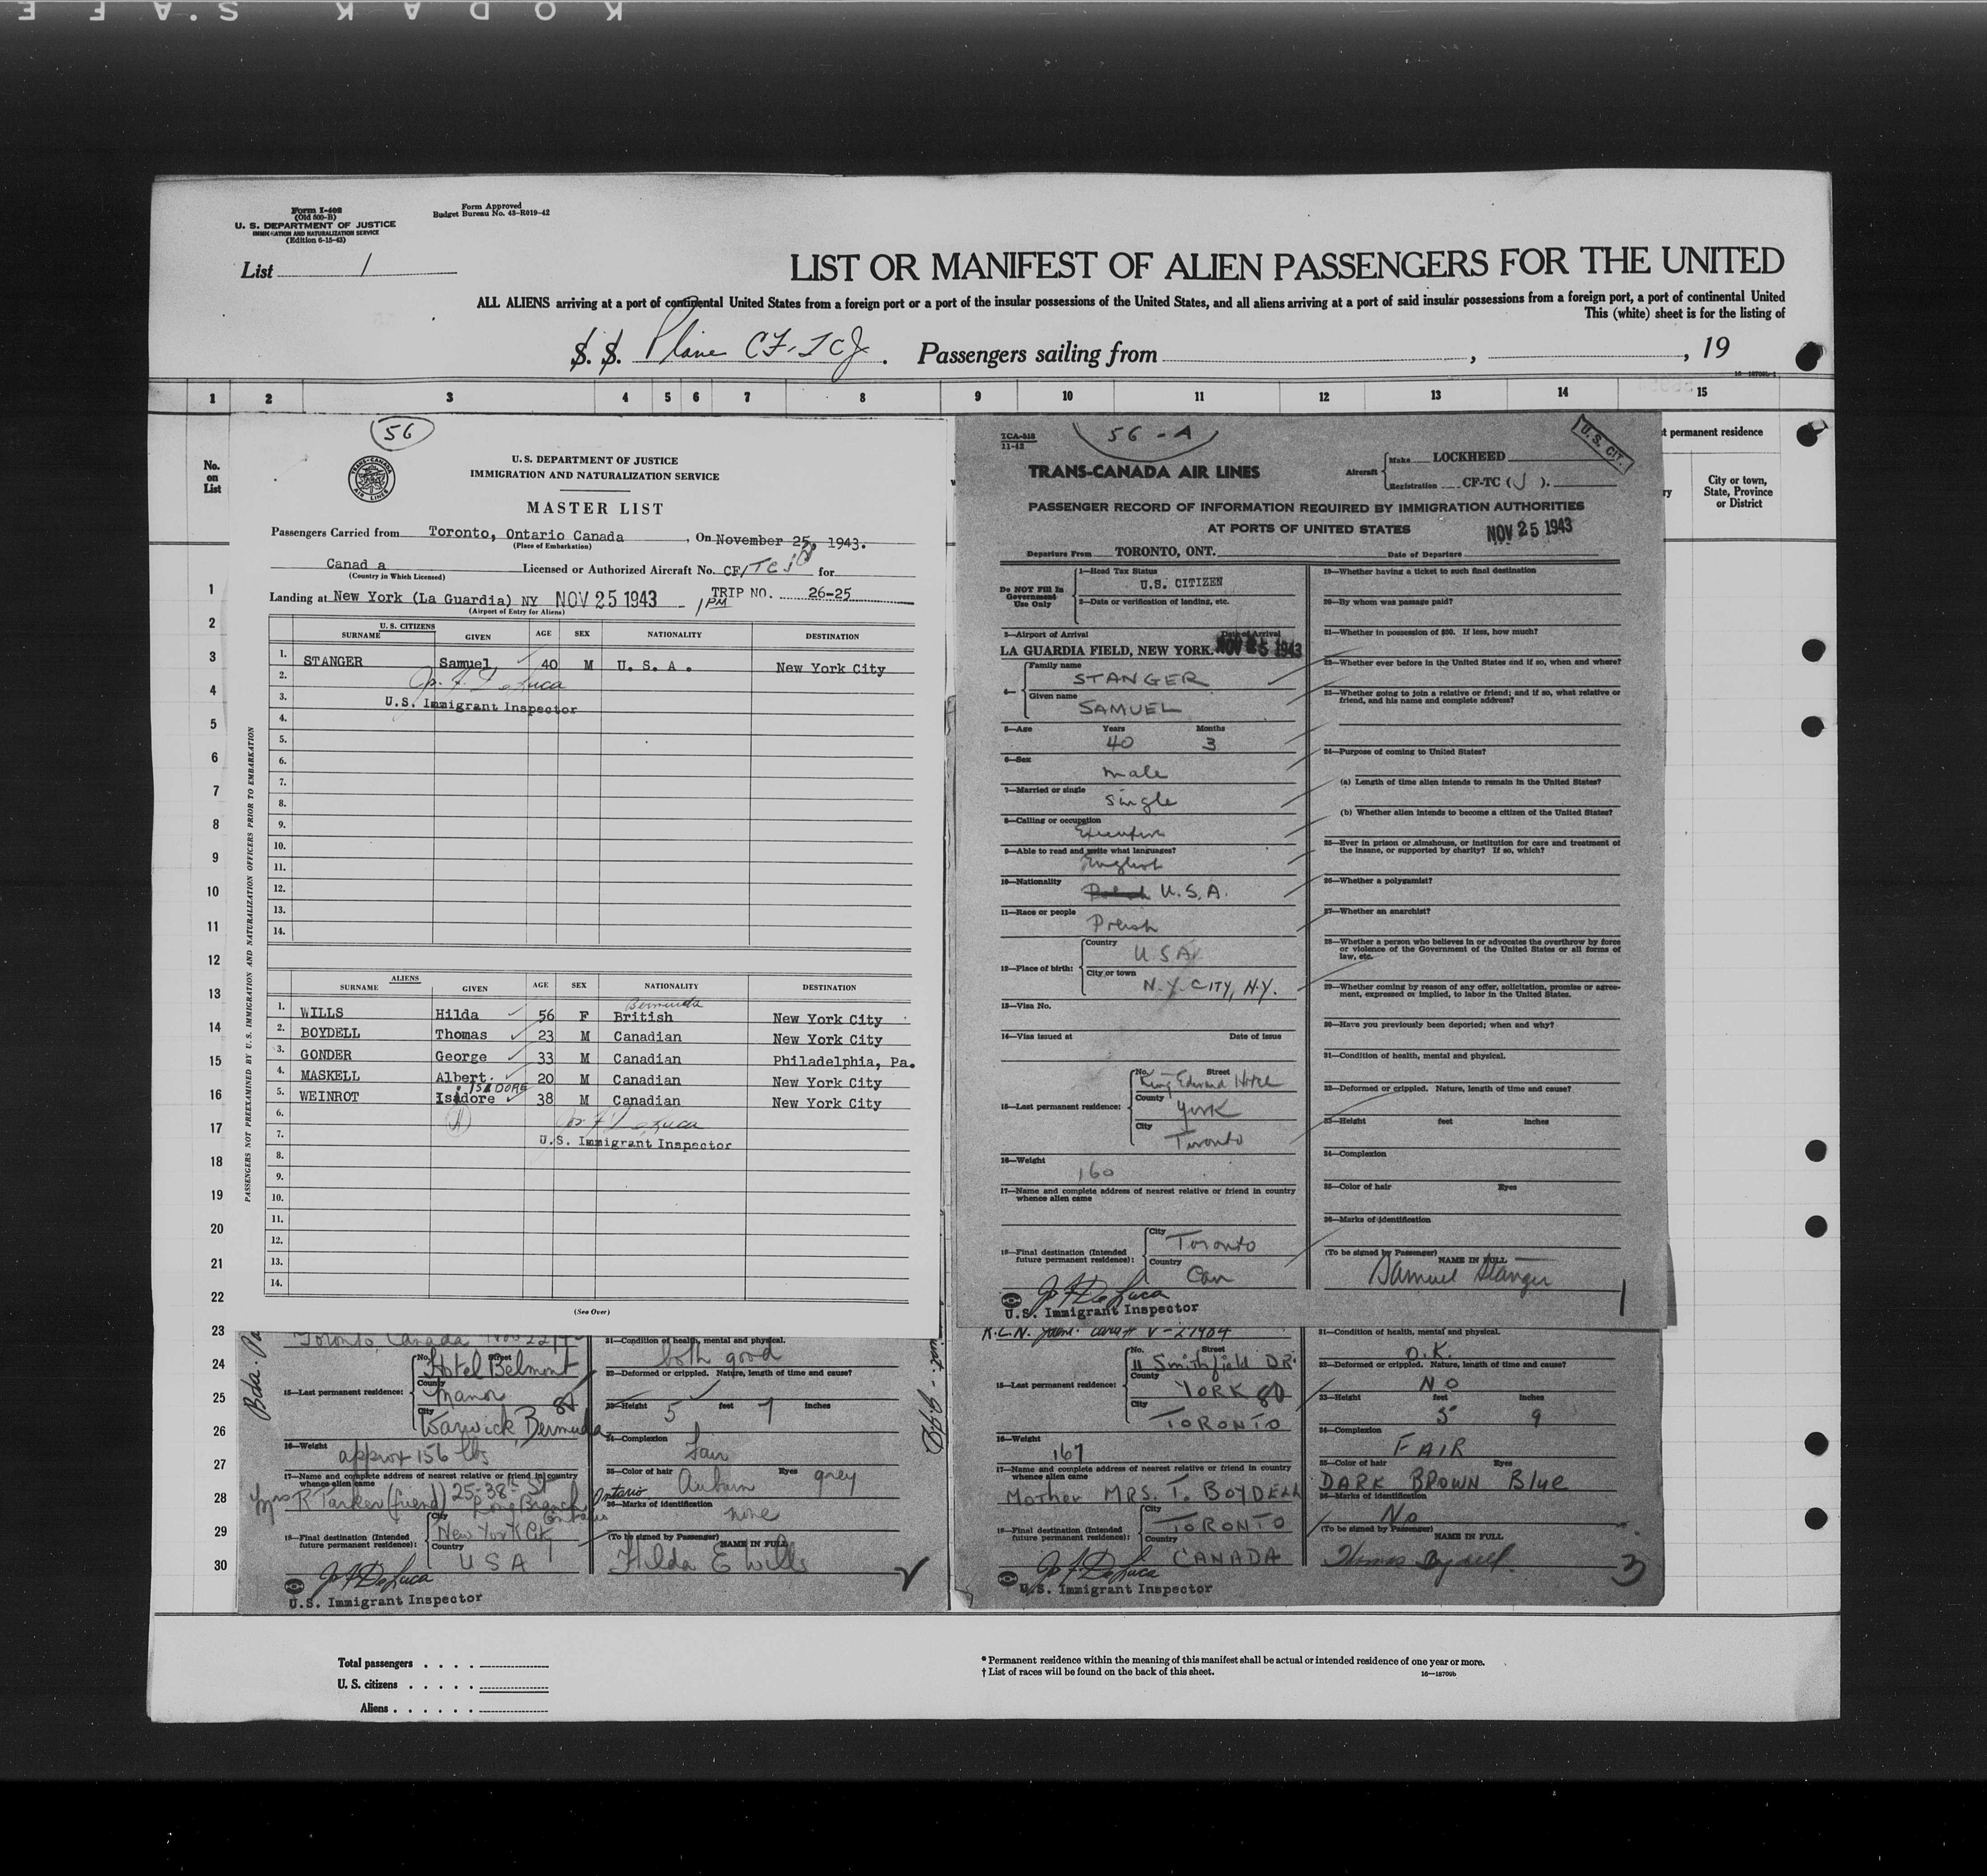 KODAK S.AFE
Form I-408
(Old 500-B)
U. S. DEPARTMENT OF JUSTICE
IMMIGRATION AND NATURALIZATION SERVICE
(Edition 6-15-43)
Form Approved
Budget Bureau No. 43-R019-42
List 1
LIST OR MANIFEST OF ALIEN PASSENGERS FOR THE UNITED
ALL ALIENS arriving at a port of continental United States from a foreign port or a port of the insular possessions of the United States, and all aliens arriving at a port of said insular possessions from a foreign port, a port of continental United
This (white) sheet is for the listing of
S. S. Plane CF-TCJ. Passengers sailing from , , 19
1 2 3 4 5 6 7 8 9 10 11 12 13 14 15
No.
on
List
t permanent residence
City or town,
State, Province
or District
1
2
3
4
5
6
7
8
9
10
11
12
13
14
15
16
17
18
19
20
21
22
23
24
25
26
27
28
29
30
56
TRANS-CANADA AIR LINES
U. S. DEPARTMENT OF JUSTICE
IMMIGRATION AND NATURALIZATION SERVICE
MASTER LIST
Passengers Carried from Toronto, Ontario Canada, On November 25, 1943.
(Place of Embarkation)
Canad a Licensed or Authorized Aircraft No. CF/TCJ for
(Country in Which Licensed)
Landing at New York (La Guardia) NY NOV 25 1943 - 1 PM TRIP NO. 26-25
(Airport of Entry for Aliens)
PASSENGERS NOT PREEXAMINED BY U.S. IMMIGRATION AND NATURALIZATION OFFICERS PRIOR TO EMBARKATION
U. S. CITIZENS
SURNAME GIVEN AGE SEX NATIONALITY DESTINATION
1. STANGER Samuel 40 M U. S. A. New York City
2. Jos. F. DeLuca
3. U.S. Immigrant Inspector
4.
5.
6.
7.
8.
9.
10.
11.
12.
13.
14.
ALIENS
SURNAME GIVEN AGE SEX NATIONALITY DESTINATION
Bermuda
1. WILLS Hilda 56 F British New York City
2. BOYDELL Thomas 23 M Canadian New York City
3. GONDER George 33 M Canadian Philadelphia, Pa.
4. MASKELL Albert. 20 M Canadian New York City
ISADORE
5. WEINROT Isadore 38 M Canadian New York City
6. Jos F DeLuca
7. U.S. Immigrant Inspector
8.
9.
10.
11.
12.
13.
14.
(See Over)
TCA-518
11-42
56-A
U. S. CIT.
TRANS-CANADA AIR LINES
Aircraft Make LOCKHEED
Registration CF-TC (J).
PASSENGER RECORD OF INFORMATION REQUIRED BY IMMIGRATION AUTHORITIES
AT PORTS OF UNITED STATES NOV 25 1943
Departure From TORONTO, ONT. Date of Departure
Do NOT Fill In
Government
Use Only
1—Head Tax Status
U.S. CITIZEN
2—Date or verification of landing, etc.
3—Airport of Arrival Date of Arrival
LA GUARDIA FIELD, NEW YORK. NOV 25 1943
4— Family name
STANGER
Given name
SAMUEL
5—Age Years Months
40 3
6—Sex
male
7—Married or single
single
8—Calling or occupation
Executive
9—Able to read and write what languages?
English
10—Nationality
U.S.A.
11—Race or people
12—Place of birth: Country
USA
City or town
N.Y. CITY, N.Y.
13—Visa No.
14—Visa issued at Date of issue
15—Last permanent residence: No. Street
King Edward Hotel
County
York
City
Toronto
16—Weight
160
17—Name and complete address of nearest relative or friend in country
whence alien came
18—Final destination (Intended
future permanent residence): City
Toronto
Country
Can
Jos F DeLuca
U.S. Immigrant Inspector
19—Whether having a ticket to such final destination
20—By whom was passage paid?
21—Whether in possession of $50. If less, how much?
22—Whether ever before in the United States and if so, when and where?
23—Whether going to join a relative or friend; and if so, what relative or
friend, and his name and complete address?
24—Purpose of coming to United States?
(a) Length of time alien intends to remain in the United States?
(b) Whether alien intends to become a citizen of the United States?
25—Ever in prison or almshouse, or institution for care and treatment of
the insane, or supported by charity? If so, which?
26—Whether a polygamist?
27—Whether an anarchist?
28—Whether a person who believes in or advocates the overthrow by force
or violence of the Government of the United States or all forms of
law, etc.
29—Whether coming by reason of any offer, solicitation, promise or agree-
ment, expressed or implied, to labor in the United States.
30—Have you previously been deported; when and why?
31—Condition of health, mental and physical.
32—Deformed or crippled. Nature, length of time and cause?
33—Height feet inches
34—Complexion
35—Color of hair Eyes
36—Marks of identification
(To be signed by Passenger) NAME IN FULL
Samuel Stanger
1
Toronto, Canada Nov 22
15—Last permanent residence: No. Street
Hotel Belmont
County
Manor
City
Warwick, Bermuda
16—Weight
approx 156 lbs
17—Name and complete address of nearest relative or friend in country
whence alien came
Mrs R Parker (friend) 25-38th St
Long Branch Ontario
Ontario
18—Final destination (Intended
future permanent residence): City
New York City
Country
USA
Jos F DeLuca
U.S. Immigrant Inspector
31—Condition of health, mental and physical.
both good
32—Deformed or crippled. Nature, length of time and cause?
33—Height 5 feet 7 inches
34—Complexion
Fair
35—Color of hair Auburn Eyes grey
36—Marks of identification
none
(To be signed by Passenger) NAME IN FULL
Hilda E Wills
2
V-21984
15—Last permanent residence: No. Street
11 Smithfield DR.
County
YORK
City
TORONTO
16—Weight
167
17—Name and complete address of nearest relative or friend in country
whence alien came
Mother MRS. T. BOYDELL
18—Final destination (Intended
future permanent residence): City
TORONTO
Country
CANADA
Jos F DeLuca
U.S. Immigrant Inspector
31—Condition of health, mental and physical.
O.K.
32—Deformed or crippled. Nature, length of time and cause?
NO
33—Height feet inches
5 9
34—Complexion
FAIR
35—Color of hair Eyes
DARK BROWN Blue
36—Marks of identification
No
(To be signed by Passenger) NAME IN FULL
Thomas Boydell.
3
Total passengers . . . .
U. S. citizens . . . . .
Aliens . . . . . .
* Permanent residence within the meaning of this manifest shall be actual or intended residence of one year or more.
† List of races will be found on the back of this sheet.
16—18709b